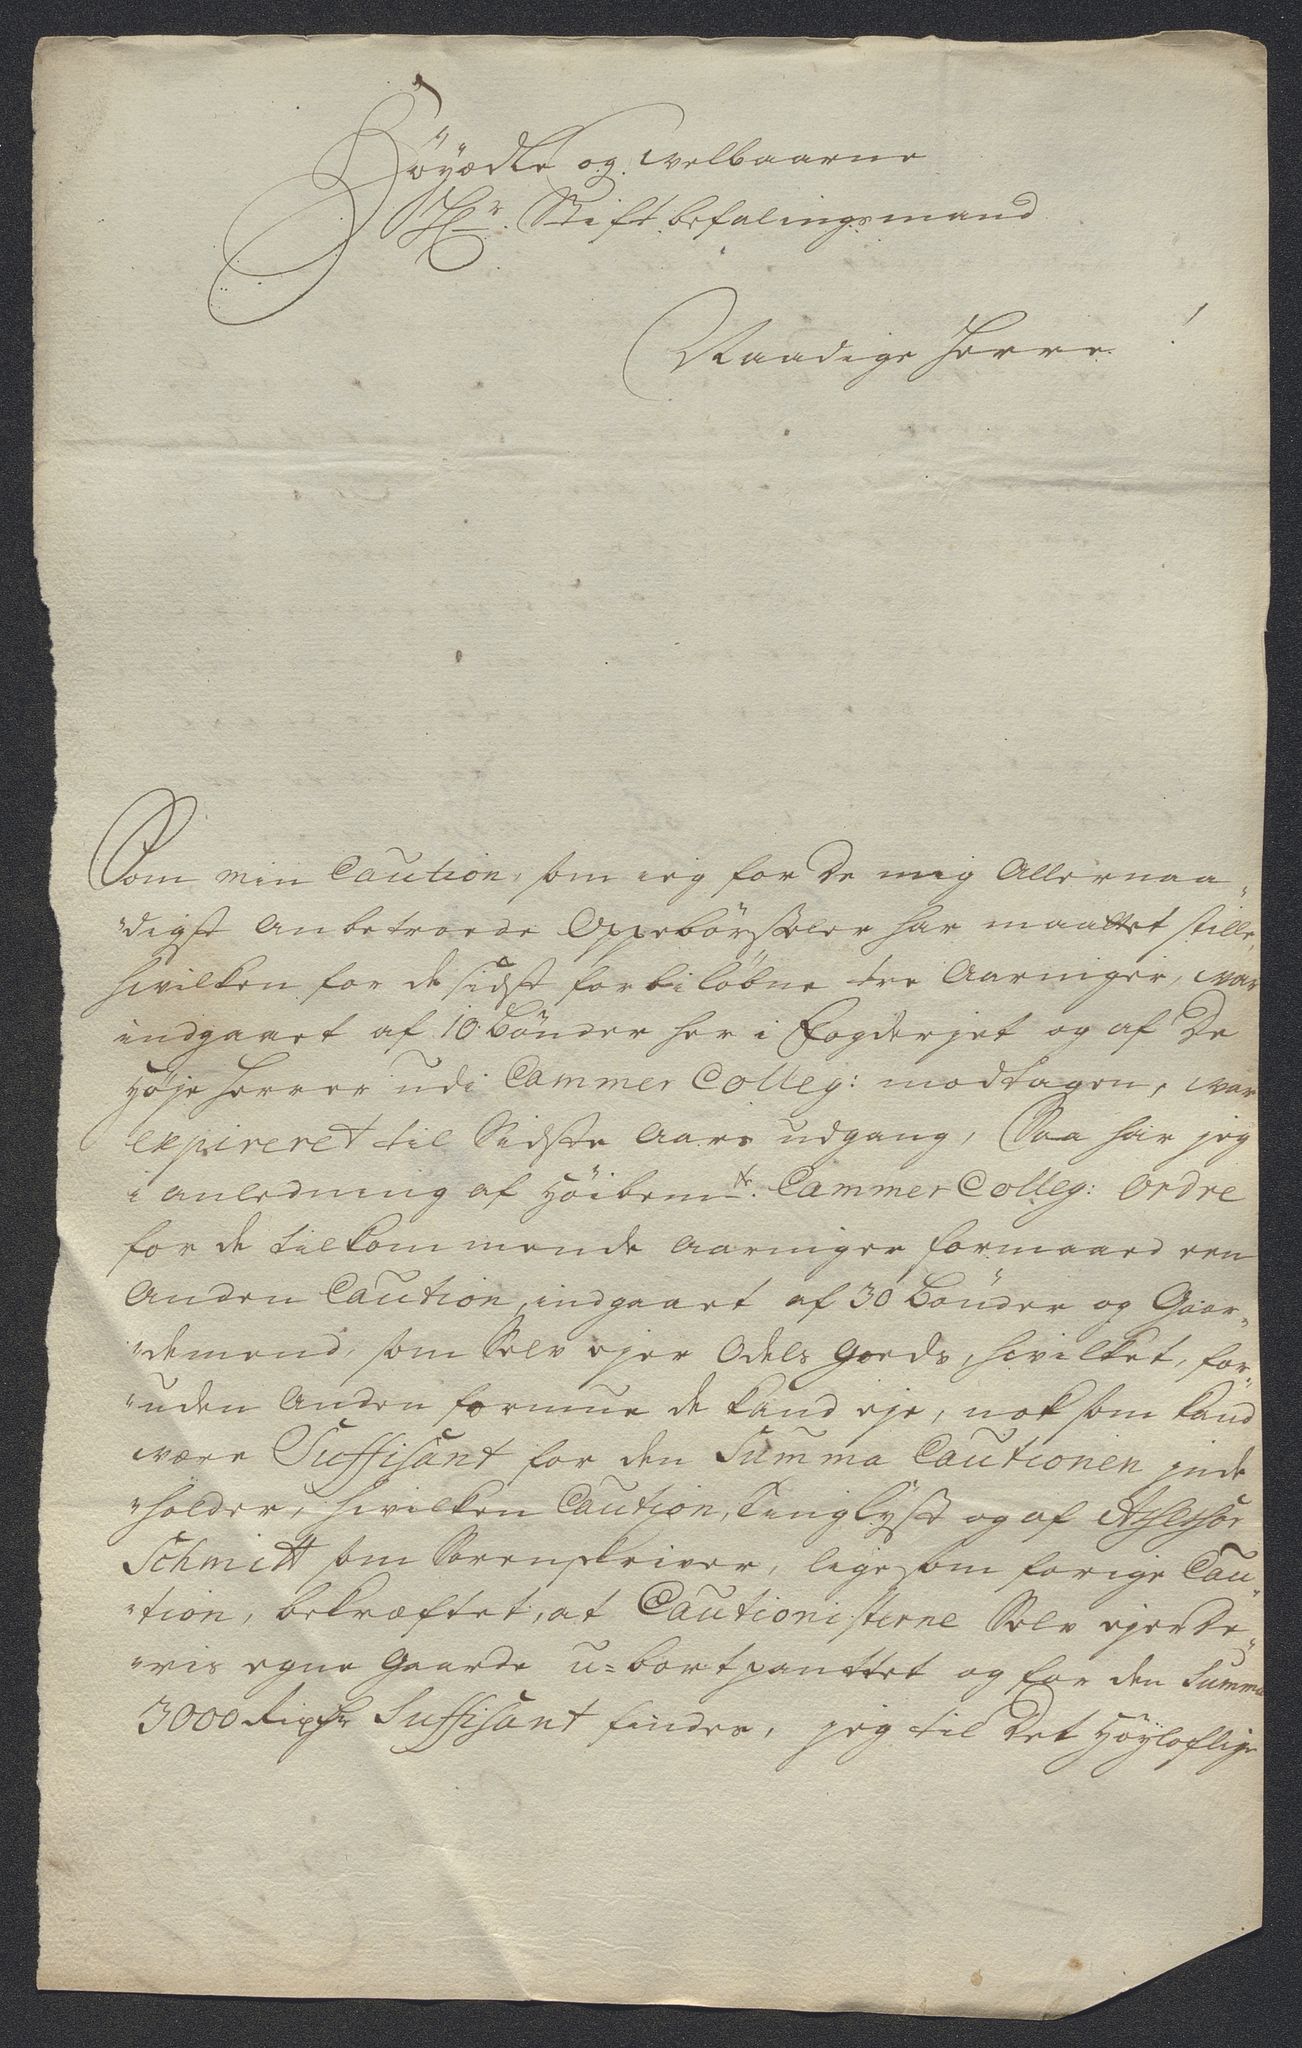 Höyædle og welbaarne
Hr. Stiftbefalingsmand
Naadige Herre!
Som min Caution, som ieg for de mig Allernaa
"digst Anbetroede Oppebörseler har maattet stille,
hvilken for de sidst forbiløbne tre Aaringer, war
indgaaet af 10 bönder her i Fogderjet og af De
Høje Herrer udi Cammer Colleg: modtagen, war
expireret til Sidste Aars udgang, Saa har jeg
i anledning af Höibemte. Cammer Colleg: Ordre
for de tilkommende Aaringer formaaed een
Anden Caution, indgaaet af 30 bönder og Gaar„
"demænd, som Selv ejer Odels Goeds, hvilket, for„
"uden Anden formue de kand eje, nok som kand
være Suffisant for den Summa Cautionen jnde
"holder, hvilken Caution, Tinglyst og af Assessor
Schmitt som Sorenskriver, lige som forige Cau„
"tion, bekræftet, at Cautionisterne Selv ejer De„
"ris egne Gaarde u=bortpanttet og for den Summa
3000 Rixdr Suffisant findes, jeg til Det Höyloflige